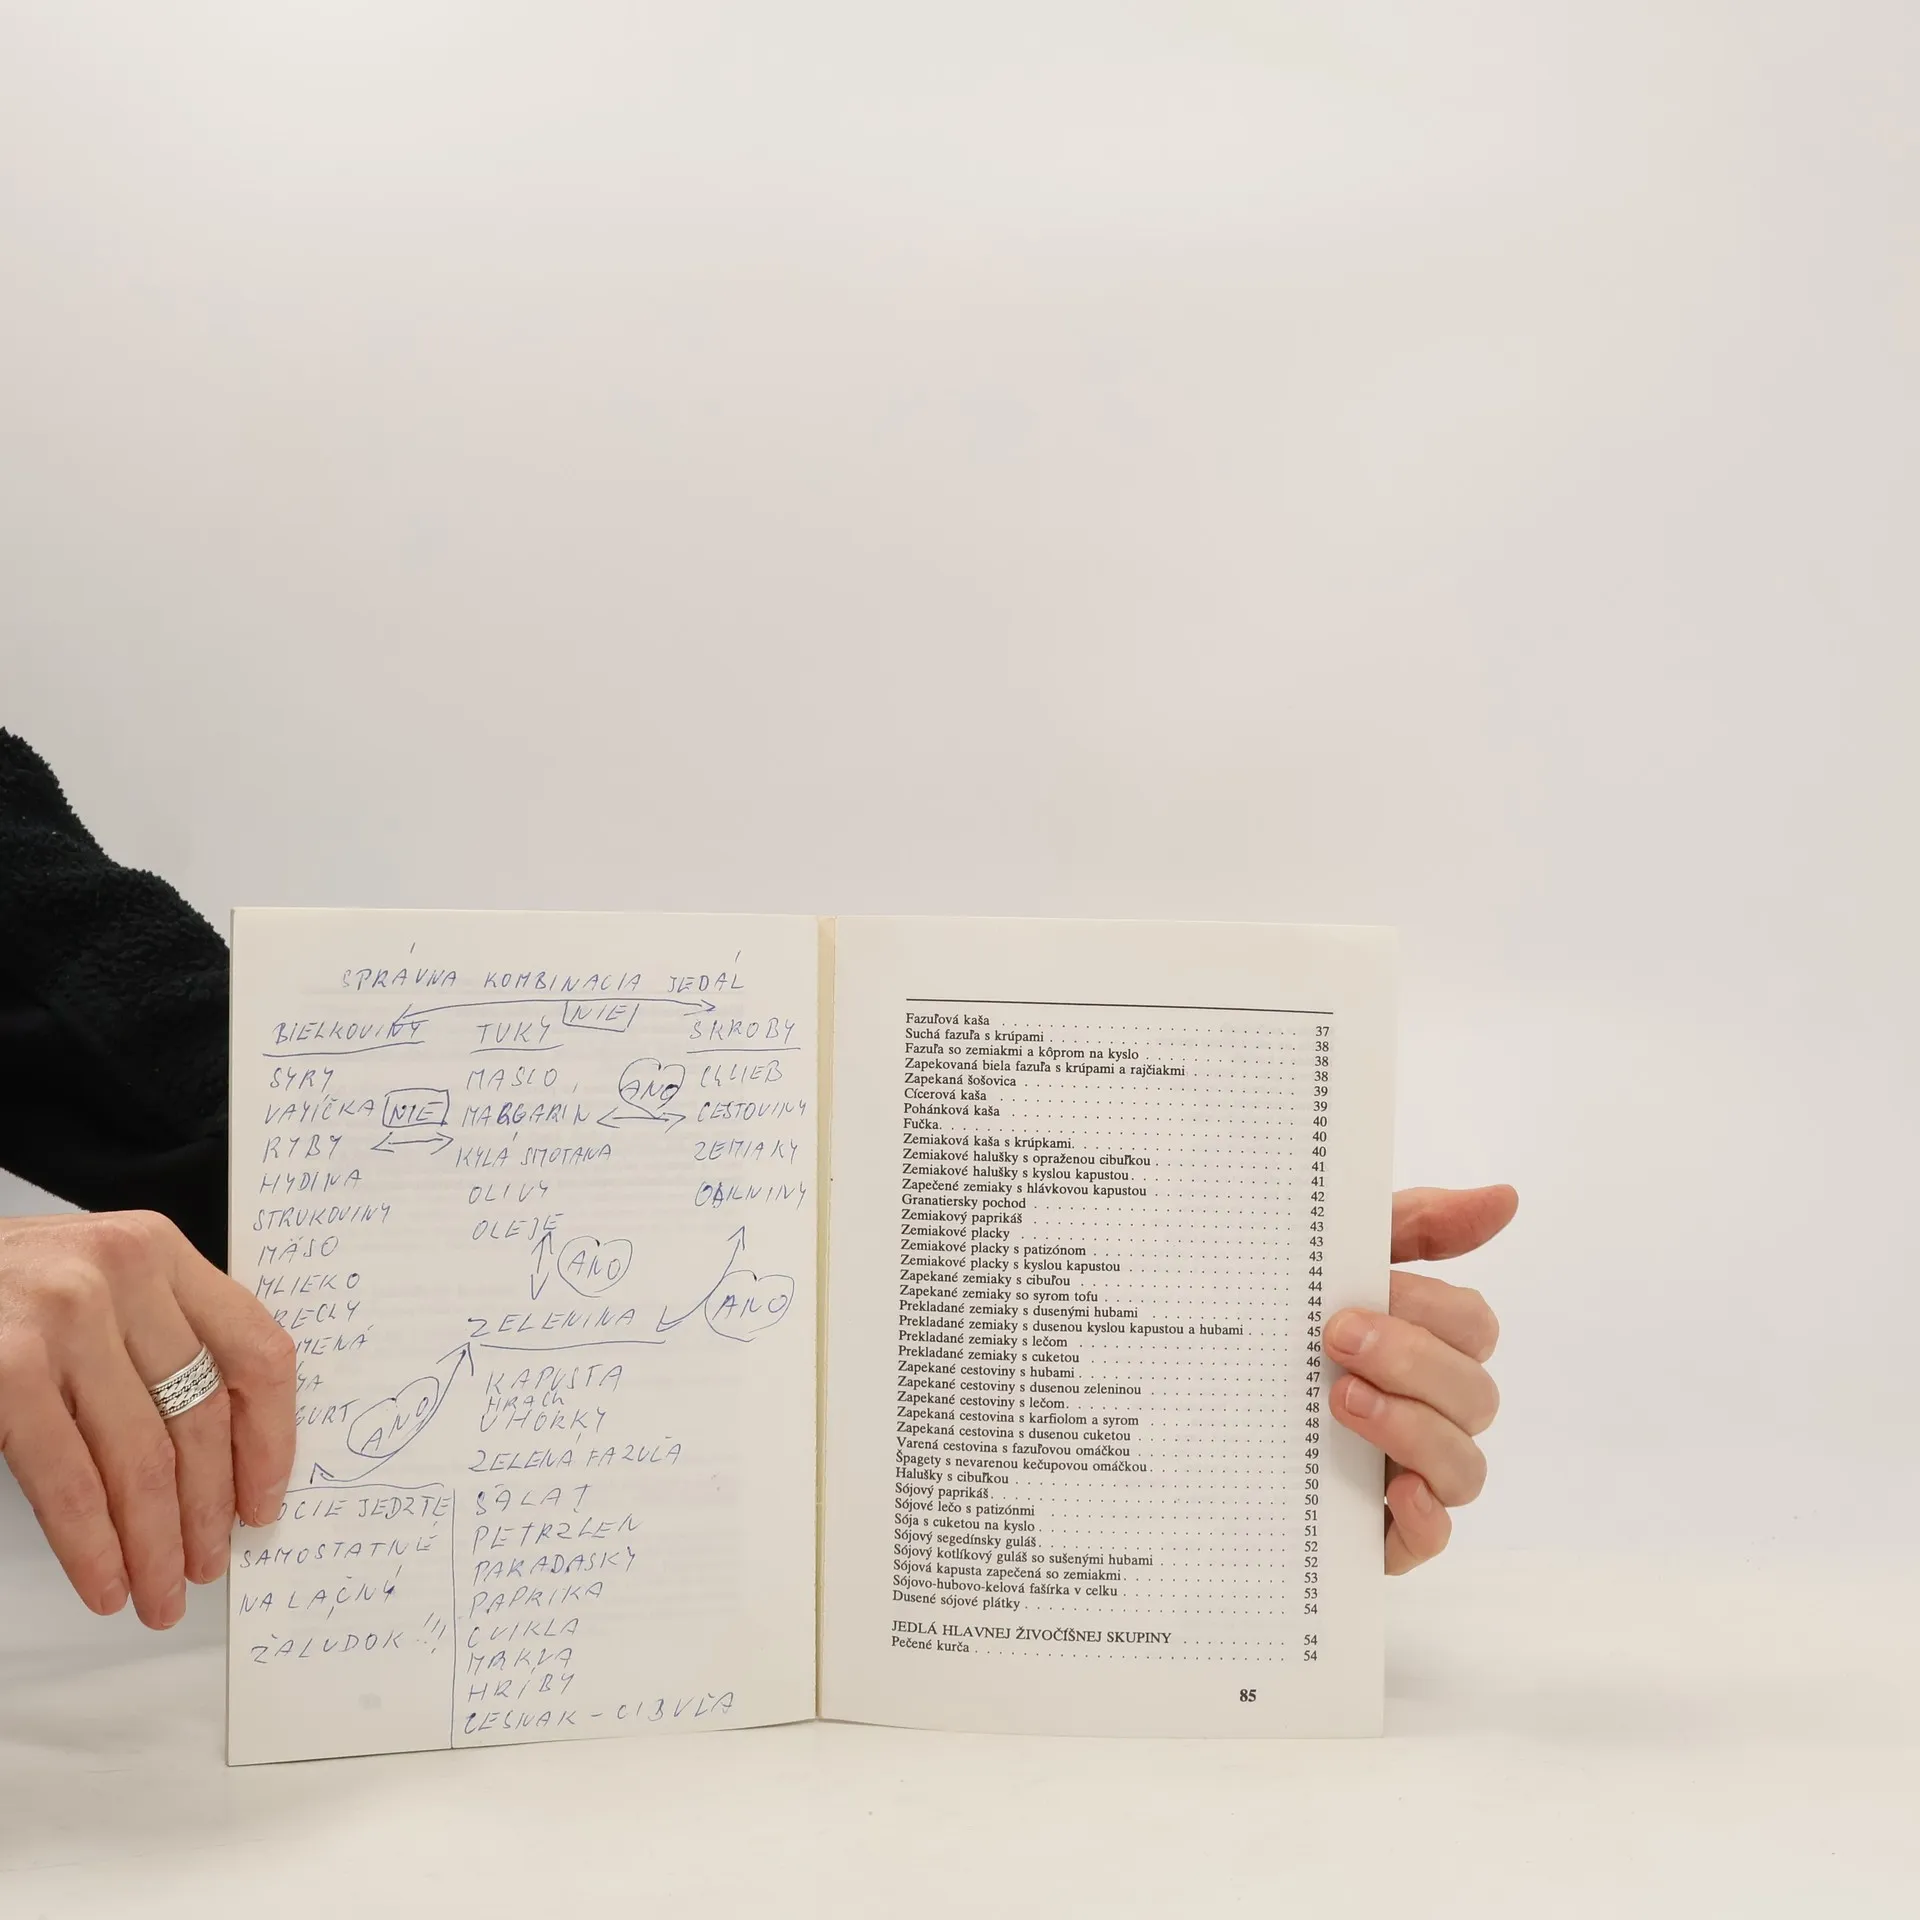 SPRÁVNA KOMBINACIA JEDÁL
NIE
BIELKOVINY TUKY SKROBY
SYRY
VAYÍČKA
RYBY
HYDINA
STRUKOVINY
MÄSO
MLIEKO
NIE
MASLO
MARGARÍN
KYLÁ SMOTANA
OLIVY
OLEJE
ANO
CHLIEB
CESTOVINY
ZEMIAKY
OBILNINY
ANO
ANO
ZELENINA
KAPUSTA
HRACH
UHORKY
ZELENÁ FAZUĽA
ŠALÁT
PETRZLEN
PARADASKY
PAPRIKA
CVIKLA
MRKVA
HRÍBY
CESNAK - CIBUĽA
ANO
JEDZTE
SAMOSTATNÉ
NA LAČNÝ
ŽALUDOK !!!
Fazuľová kaša . . . 37
Suchá fazuľa s krúpami . . . 38
Fazuľa so zemiakmi a kôprom na kyslo . . . 38
Zapekovaná biela fazuľa s krúpami a rajčiakmi . . . 38
Zapekaná šošovica . . . 39
Cícerová kaša . . . 39
Pohánková kaša . . . 40
Fučka. . . . 40
Zemiaková kaša s krúpkami. . . . 40
Zemiakové halušky s opraženou cibuľkou . . . 41
Zemiakové halušky s kyslou kapustou. . . . 41
Zapečené zemiaky s hlávkovou kapustou . . . 42
Granatiersky pochod . . . 42
Zemiakový paprikáš . . . 43
Zemiakové placky . . . 43
Zemiakové placky s patizónom . . . 43
Zemiakové placky s kyslou kapustou . . . 44
Zapekané zemiaky s cibuľou . . . 44
Zapekané zemiaky so syrom tofu . . . 44
Prekladané zemiaky s dusenými hubami . . . 45
Prekladané zemiaky s dusenou kyslou kapustou a hubami . . . 45
Prekladané zemiaky s lečom . . . 46
Prekladané zemiaky s cuketou . . . 46
Zapekané cestoviny s hubami . . . 47
Zapekané cestoviny s dusenou zeleninou . . . 47
Zapekané cestoviny s lečom. . . . 48
Zapekaná cestovina s karfiolom a syrom . . . 48
Zapekaná cestovina s dusenou cuketou . . . 49
Varená cestovina s fazuľovou omáčkou . . . 49
Špagety s nevarenou kečupovou omáčkou. . . . 50
Halušky s cibuľkou . . . 50
Sójový paprikáš. . . . 50
Sójové lečo s patizónmi . . . 51
Sója s cuketou na kyslo . . . 51
Sójový segedínsky guláš. . . . 52
Sójový kotlíkový guláš so sušenými hubami . . . 52
Sójová kapusta zapečená so zemiakmi. . . . 53
Sójovo-hubovo-kelová fašírka v celku . . . 53
Dusené sójové plátky . . . 54
JEDLÁ HLAVNEJ ŽIVOČÍŠNEJ SKUPINY . . . 54
Pečené kurča . . . 54
85